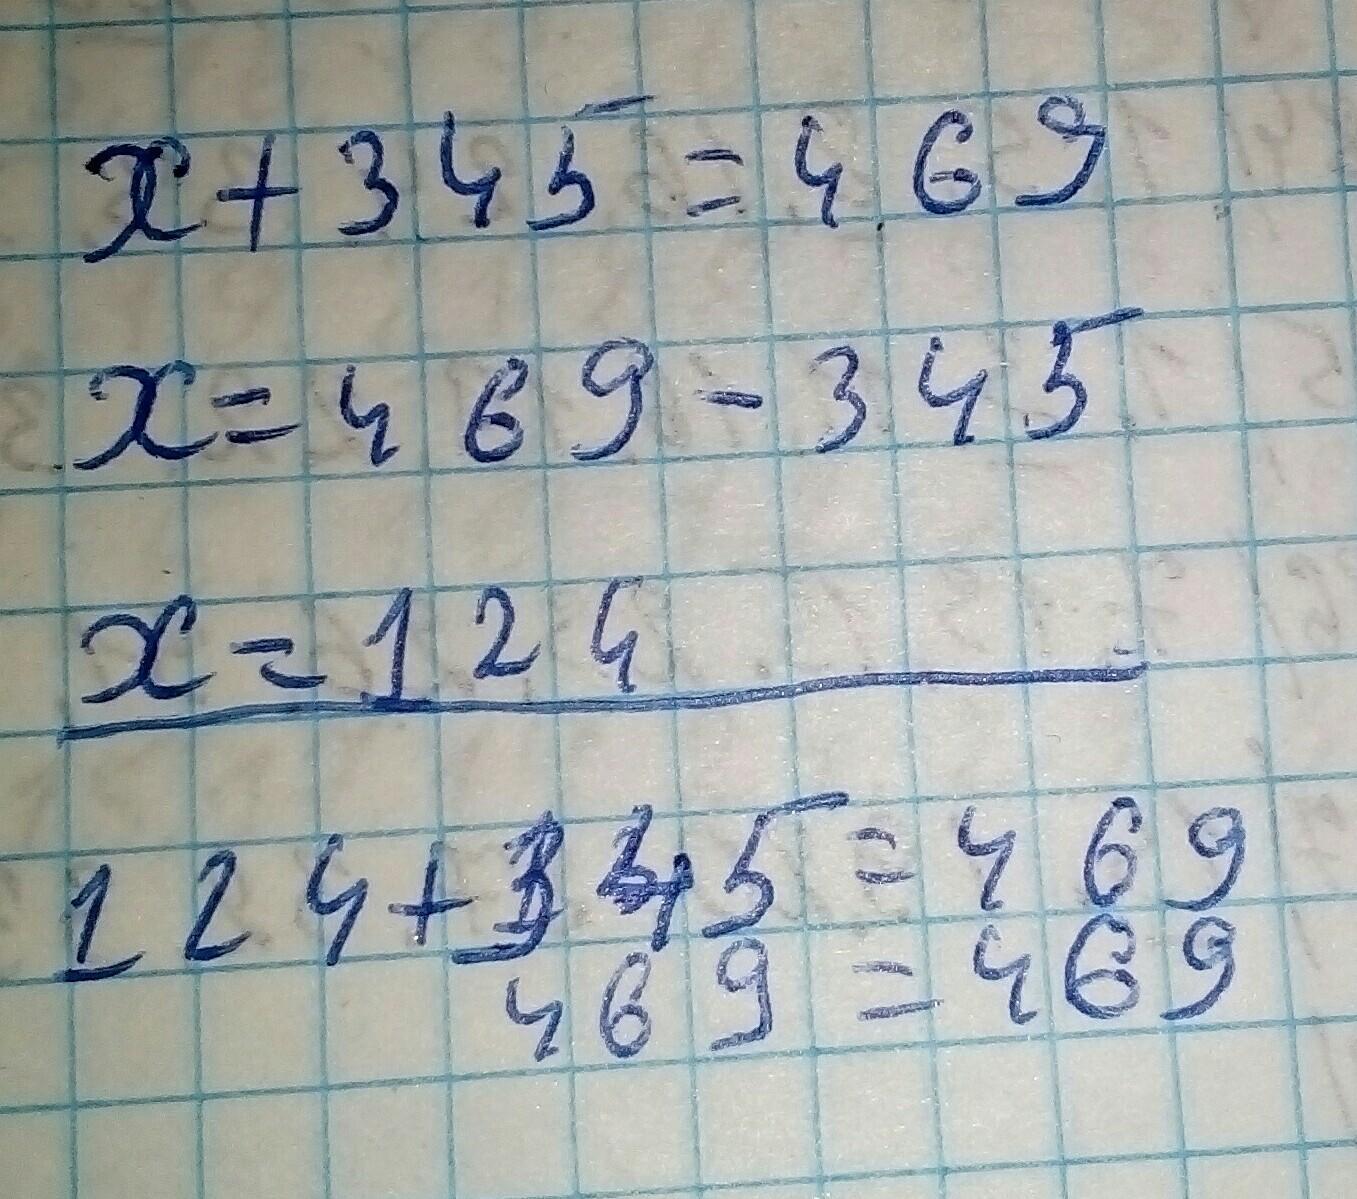 x+345=469
x=469-345
x=124
124+345=469
469=469